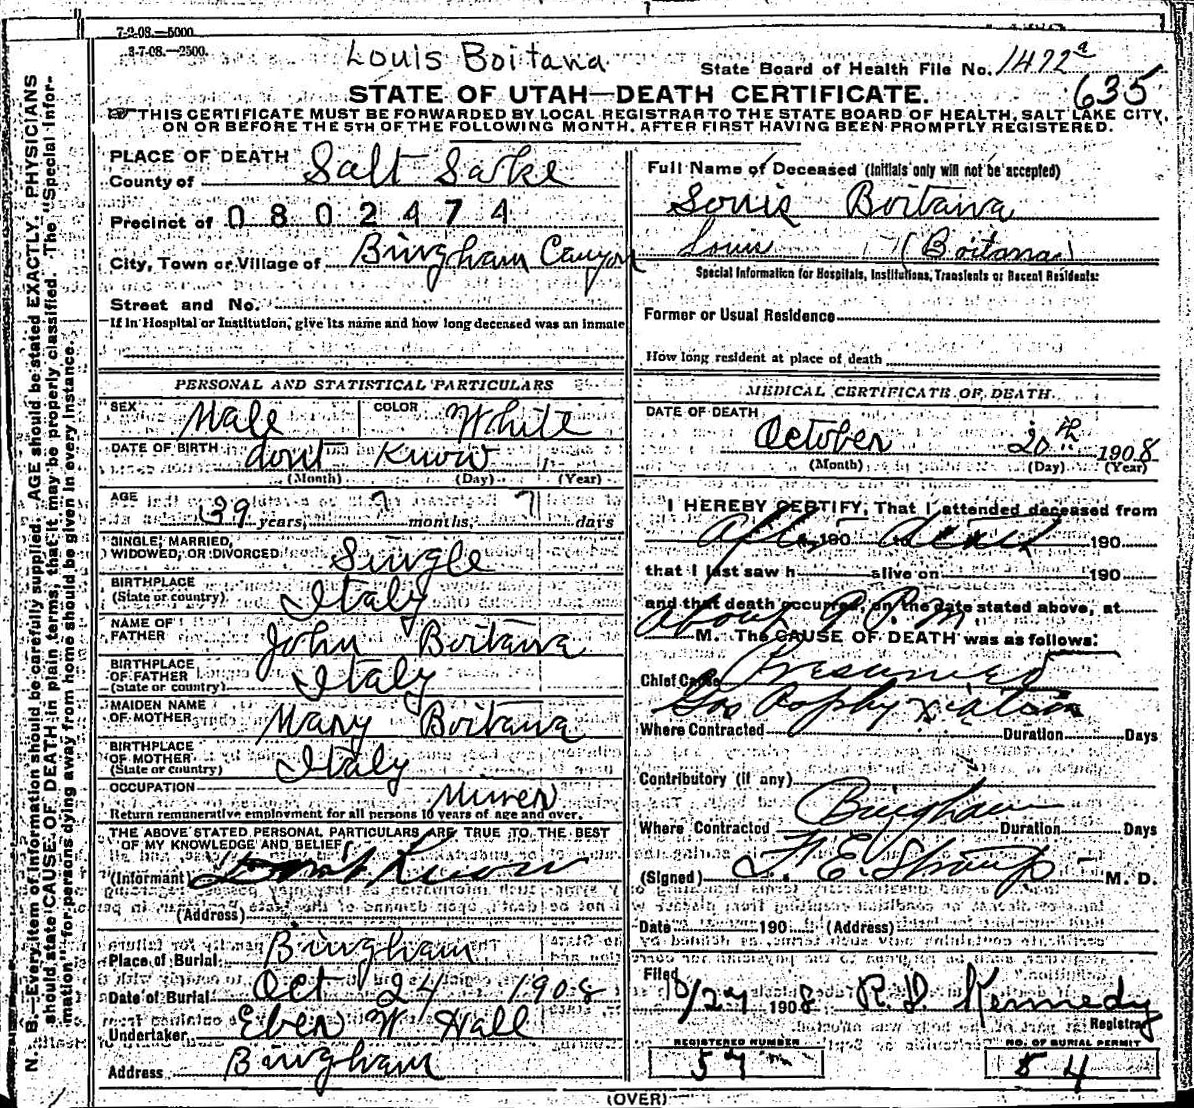 7-9-08.—5000
3-7-08.—2500.
Louis Boitana
State Board of Health File No. 1472a
635
STATE OF UTAH—DEATH CERTIFICATE.
THIS CERTIFICATE MUST BE FORWARDED BY LOCAL REGISTRAR TO THE STATE BOARD OF HEALTH, SALT LAKE CITY,
ON OR BEFORE THE 5TH OF THE FOLLOWING MONTH, AFTER FIRST HAVING BEEN PROMPTLY REGISTERED.
PLACE OF DEATH
County of Salt Lake
Precinct of 0802474
City, Town or Village of Bingham Canyon
Street and No.
If in Hospital or Institution, give its name and how long deceased was an inmate
PERSONAL AND STATISTICAL PARTICULARS
SEX Male COLOR White
DATE OF BIRTH dont Know
(Month) (Day) (Year)
AGE 39 years, ? months, ? days
SINGLE, MARRIED,
WIDOWED, OR DIVORCED Single
BIRTHPLACE
(State or country) Italy
NAME OF
FATHER John Boitana
BIRTHPLACE
OF FATHER
(State or country) Italy
MAIDEN NAME
OF MOTHER Mary Boitana
BIRTHPLACE
OF MOTHER
(State or country) Italy
OCCUPATION Miner
Return remunerative employment for all persons 10 years of age and over.
THE ABOVE STATED PERSONAL PARTICULARS ARE TRUE TO THE BEST
OF MY KNOWLEDGE AND BELIEF
(Informant) Dont Know
(Address)
Place of Burial Bingham
Date of Burial Oct 24 1908
Undertaker Eber W Hall
Address Bingham
Full Name of Deceased (Initials only will not be accepted)
Louis Boitana
Louis (Boitana)
Special Information for Hospitals, Institutions, Transients or Recent Residents:
Former or Usual Residence
How long resident at place of death
MEDICAL CERTIFICATE OF DEATH.
DATE OF DEATH
October 20th 1908
(Month) (Day) (Year)
I HEREBY CERTIFY, That I attended deceased from
After 190 to death 190
that I last saw h alive on 190
and that death occurred, on the date stated above, at
About 9 P.M.
M. The CAUSE OF DEATH was as follows:
Chief Cause Presumed
Gas Asphyxiation
Where Contracted Duration Days
Contributory (if any)
Bingham
Where Contracted Duration Days
(Signed) F. E. Straup M. D.
Date 190 (Address)
Filed 10/27 1908 R. D. Kennedy
Registrar
REGISTERED NUMBER
57
NO. OF BURIAL PERMIT
54
(OVER)
N. B.—Every item of information should be carefully supplied. AGE should be stated EXACTLY. PHYSICIANS
should state CAUSE OF DEATH in plain terms, that it may be properly classified. The "Special Infor-
mation" for persons dying away from home should be given in every instance.